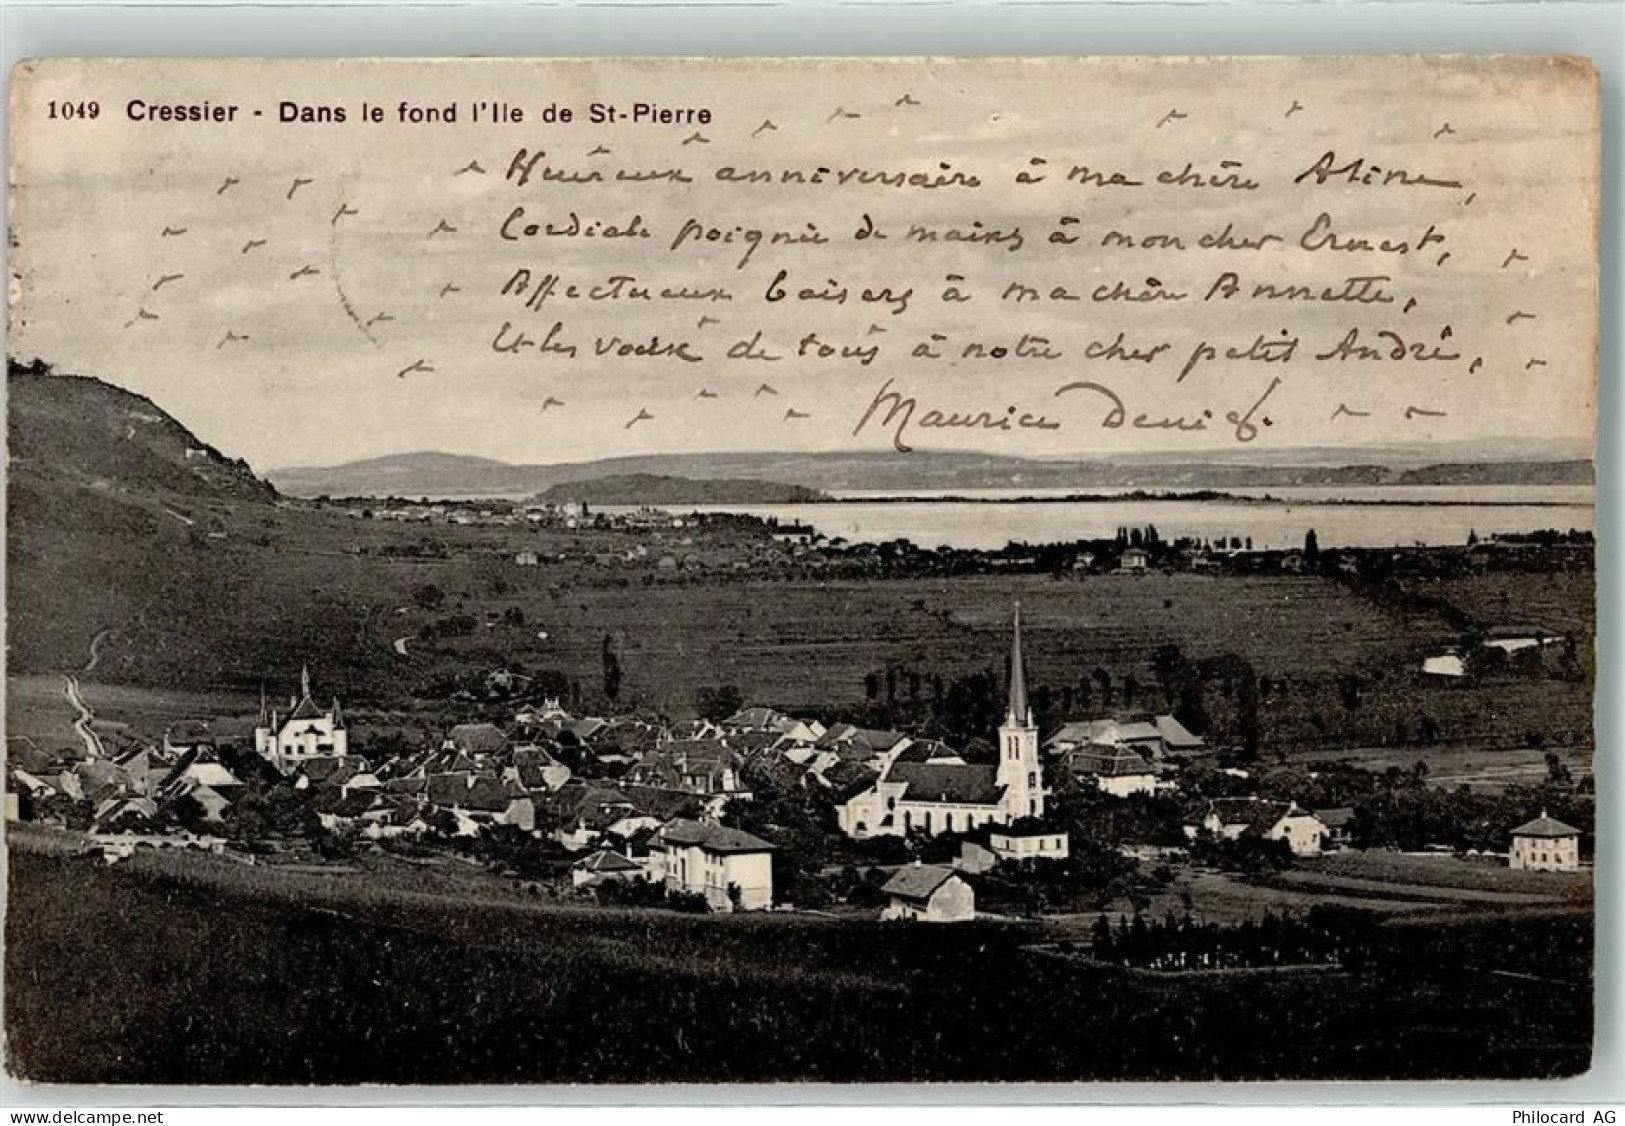 1049 Cressier - Dans le fond l'Ile de St-Pierre
Heureux anniversaire à ma chère Aline,
Cordiale poignée de mains à mon cher Ernest,
Affectueux baisers à ma chère Annette,
Et les voeux de tous à notre cher petit André,
Maurice
www.delcampe.net
Philocard AG